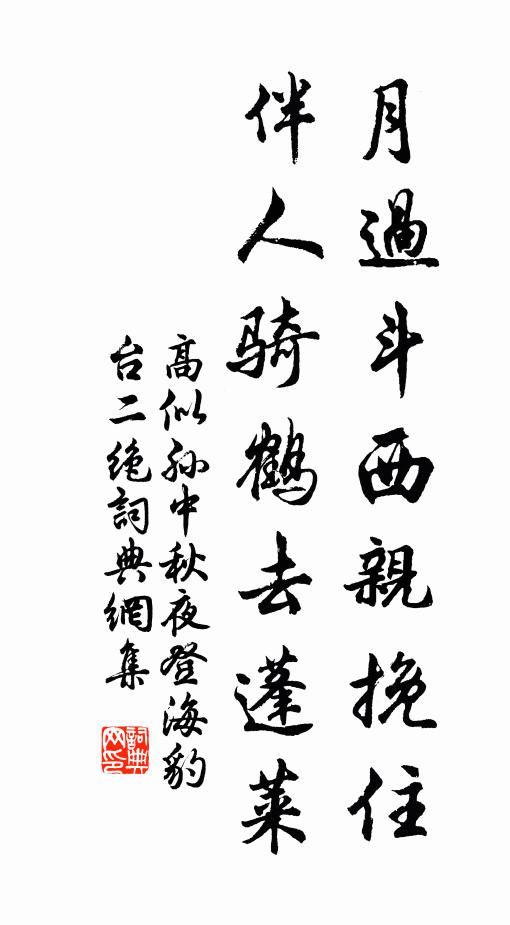 月過斗西親挽住
伴人騎鶴去蓬萊
高似孫中秋夜登海豹
台二絕詞典網集
詞典
网印